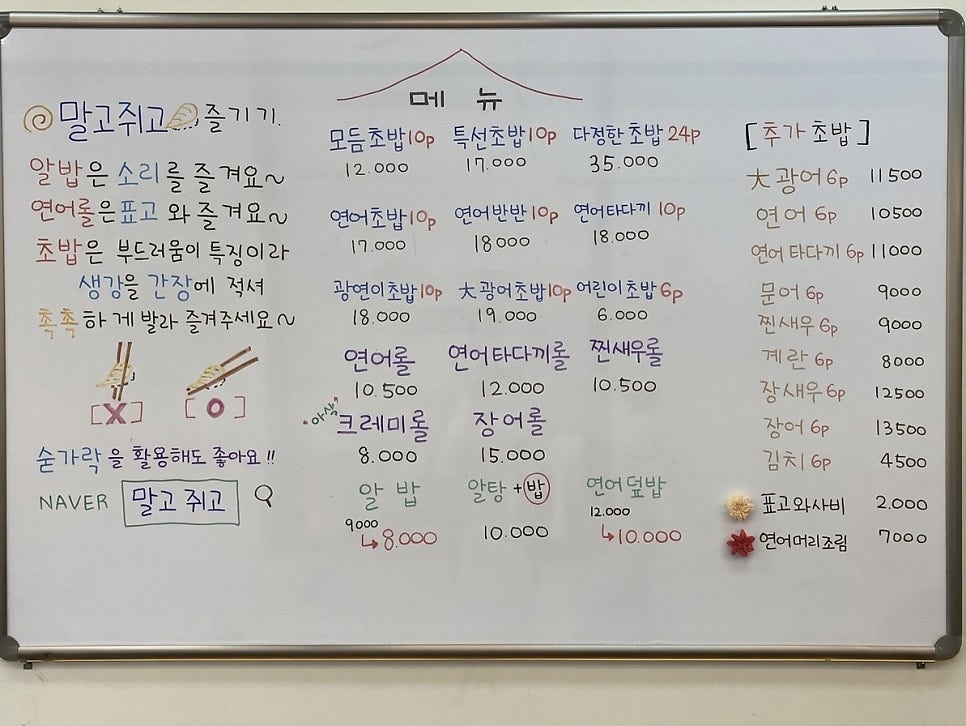 말고쥐고 즐기기.
알밥은 소리를 즐겨요~
연어롤은 표고와 즐겨요~
초밥은 부드러움이 특징이라
생강을 간장에 적셔
촉촉하게 발라 즐겨주세요~
[X] [O]
숟가락을 활용해도 좋아요!!
NAVER 말고 쥐고
메뉴
모듬초밥 10p 특선초밥 10p 다정한 초밥 24p
12.000 17.000 35.000
연어초밥 10p 연어반반 10p 연어타다끼 10p
17.000 18000 18.000
광연이초밥 10p 大광어초밥 10p 어린이초밥 6p
18.000 19.000 6.000
연어롤 연어타다끼롤 찐새우롤
10.500 12.000 10.500
•아삭• 크레미롤 장어롤
8.000 15.000
알밥 알탕+밥 연어덮밥
9000 12.000
↳8.000 10.000 ↳10.000
[추가 초밥]
大광어 6p 11500
연어 6p 10500
연어타다끼 6p 11000
문어 6p 9000
찐새우 6p 9000
계란 6p 8000
장새우 6p 12500
장어 6p 13500
김치 6p 4500
표고와사비 2.000
연어머리조림 7000